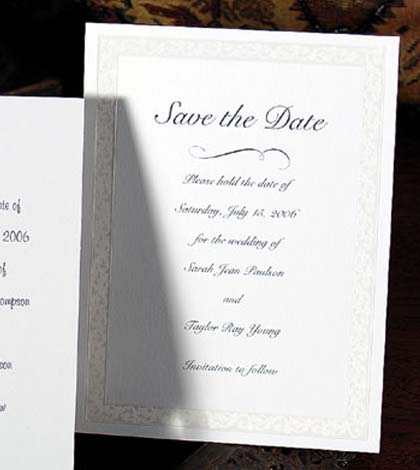 te of
2006
of
mpson
son
w
Save the Date
Please hold the date of
Saturday, July 15, 2006
for the wedding of
Sarah Jean Paulson
and
Taylor Ray Young
Invitation to follow